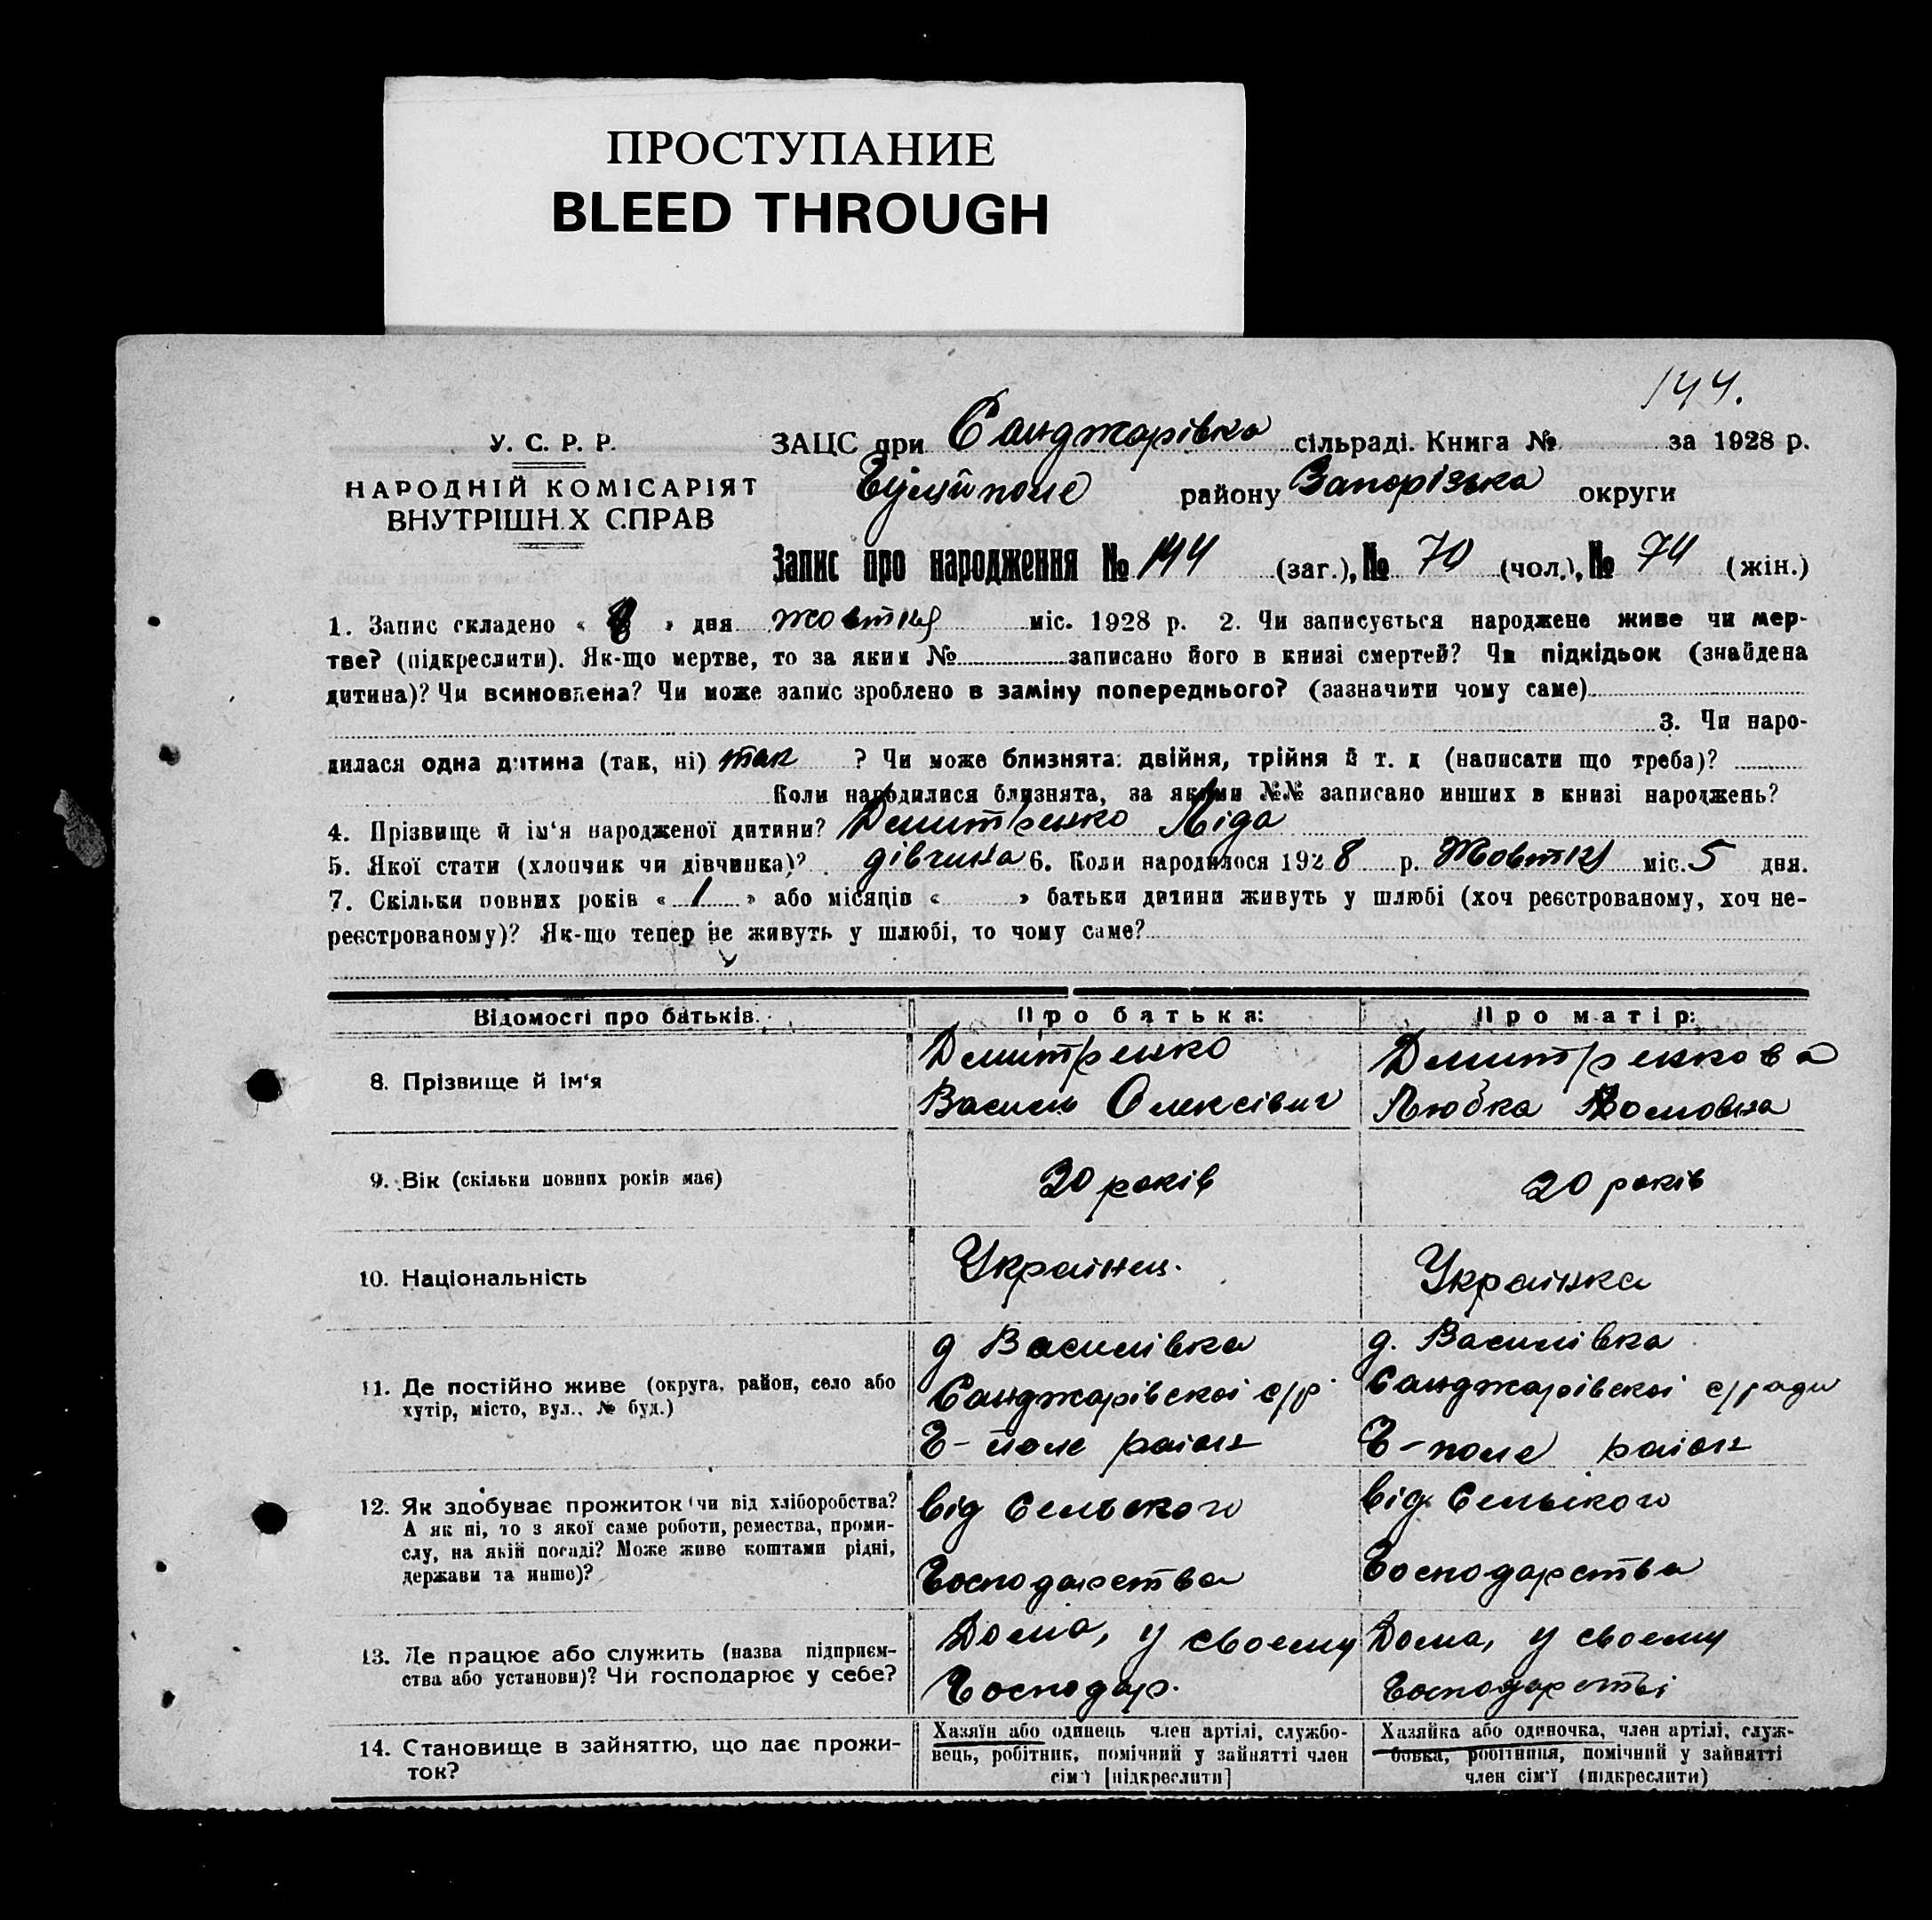 ПРОСТУПАНИЕ
BLEED THROUGH
144.
У. С. Р. Р.
НАРОДНІЙ КОМІСАРІЯТ
ВНУТРІШН.Х СПРАВ
ЗАЦС при Санджарівка сільраді. Книга № за 1928 р.
району Запорізька округи
Запис про народження № 144 (заг.), № 70 (чол.), № 74 (жін.)
1. Запис складено « 8 » дня жовтня міс. 1928 р. 2. Чи записується народжене живе чи мер-
тве? (підкреслити). Як-що мертве, то за яким № записано його в книзі смертей? Чи підкідьок (знайдена
дитина)? Чи всиновлена? Чи може запис зроблено в заміну попереднього? (зазначити чому саме)
3. Чи наро-
дилася одна дитина (так, ні) так ? Чи може близнята: двійня, трійня й т. д (написати що треба)?
Коли народилися близнята, за якими №№ записано инших в книзі народжень?
4. Прізвище й ім'я народженої дитини? Дмитренко Ліда
5. Якої стати (хлопчик чи дівчинка)? дівчина 6. Коли народилося 1928 р. Жовтня міс. 5 дня.
7. Скільки повних років « 1 » або місяців « » батьки дитини живуть у шлюбі (хоч реєстрованому, хоч не-
реєстрованому)? Як-що тепер не живуть у шлюбі, то чому саме?
Відомості про батьків. Про батька: Про матір:
8. Прізвище й ім'я
Дмитренко
Василь Олексівич
Дмитренкова
Любка
9. Вік (скільки повних років має) 20 років 20 років
10. Національність Українец. Українка
11. Де постійно живе (округа, район, село або
хутір, місто, вул., № буд.)
д Василівка
Санджарівскоі с/р
Г- поле раіон
д. Василівка
Санджарівскоі с/ради
Г- поле раіон
12. Як здобуває прожиток (чи від хліборобства?
А як ні, то з якої саме роботи, ремества, проми-
слу, на якій посаді? Може живе коштами рідні,
держави та инше)?
від Сельского
Господарства
від Сельского
Господарства
13. Де працює або служить (назва підприєм-
ства або установи)? Чи господарює у себе?
Дома, у своему
Господар.
Дома, у своему
Господарстві
14. Становище в зайняттю, що дає прожи-
ток?
Хазяїн або одинець член артілі, службо-
вець, робітник, помічний у зайнятті член
сім'ї [підкреслити]
Хазяйка або одиночка, член артілі, служ-
бовка, робітниця, помічний у зайнятті
член сім'ї (підкреслити)